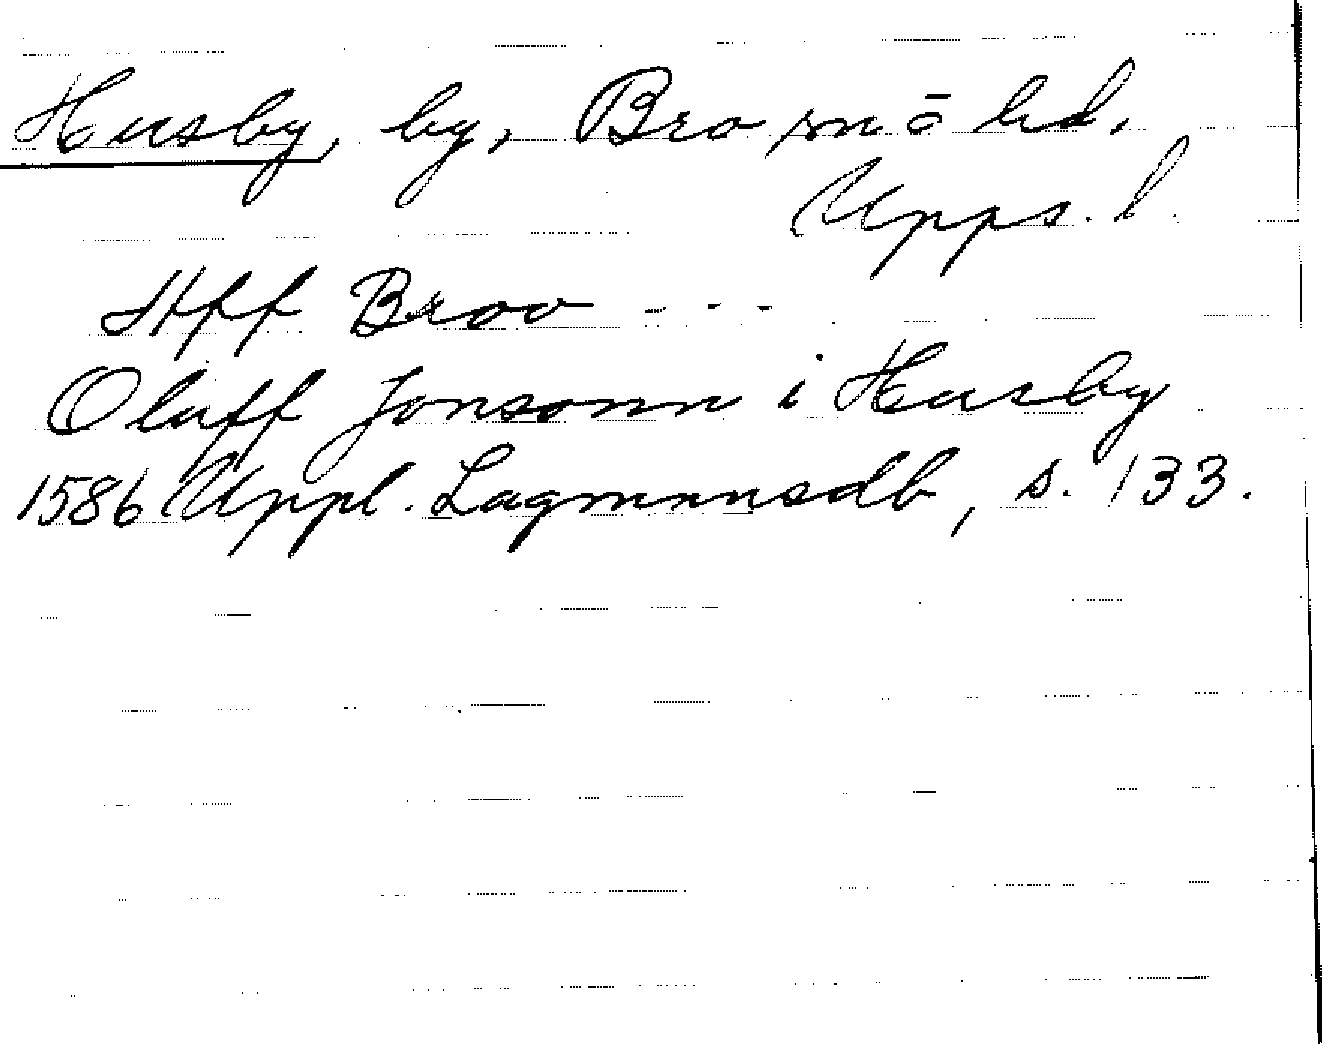 Husby, by, Bro sn = hd.
Upps. l.
Aff Broo - - -
Olaff Jonsonn i Husby
1586 Uppl. Lagmansdb, s. 133.